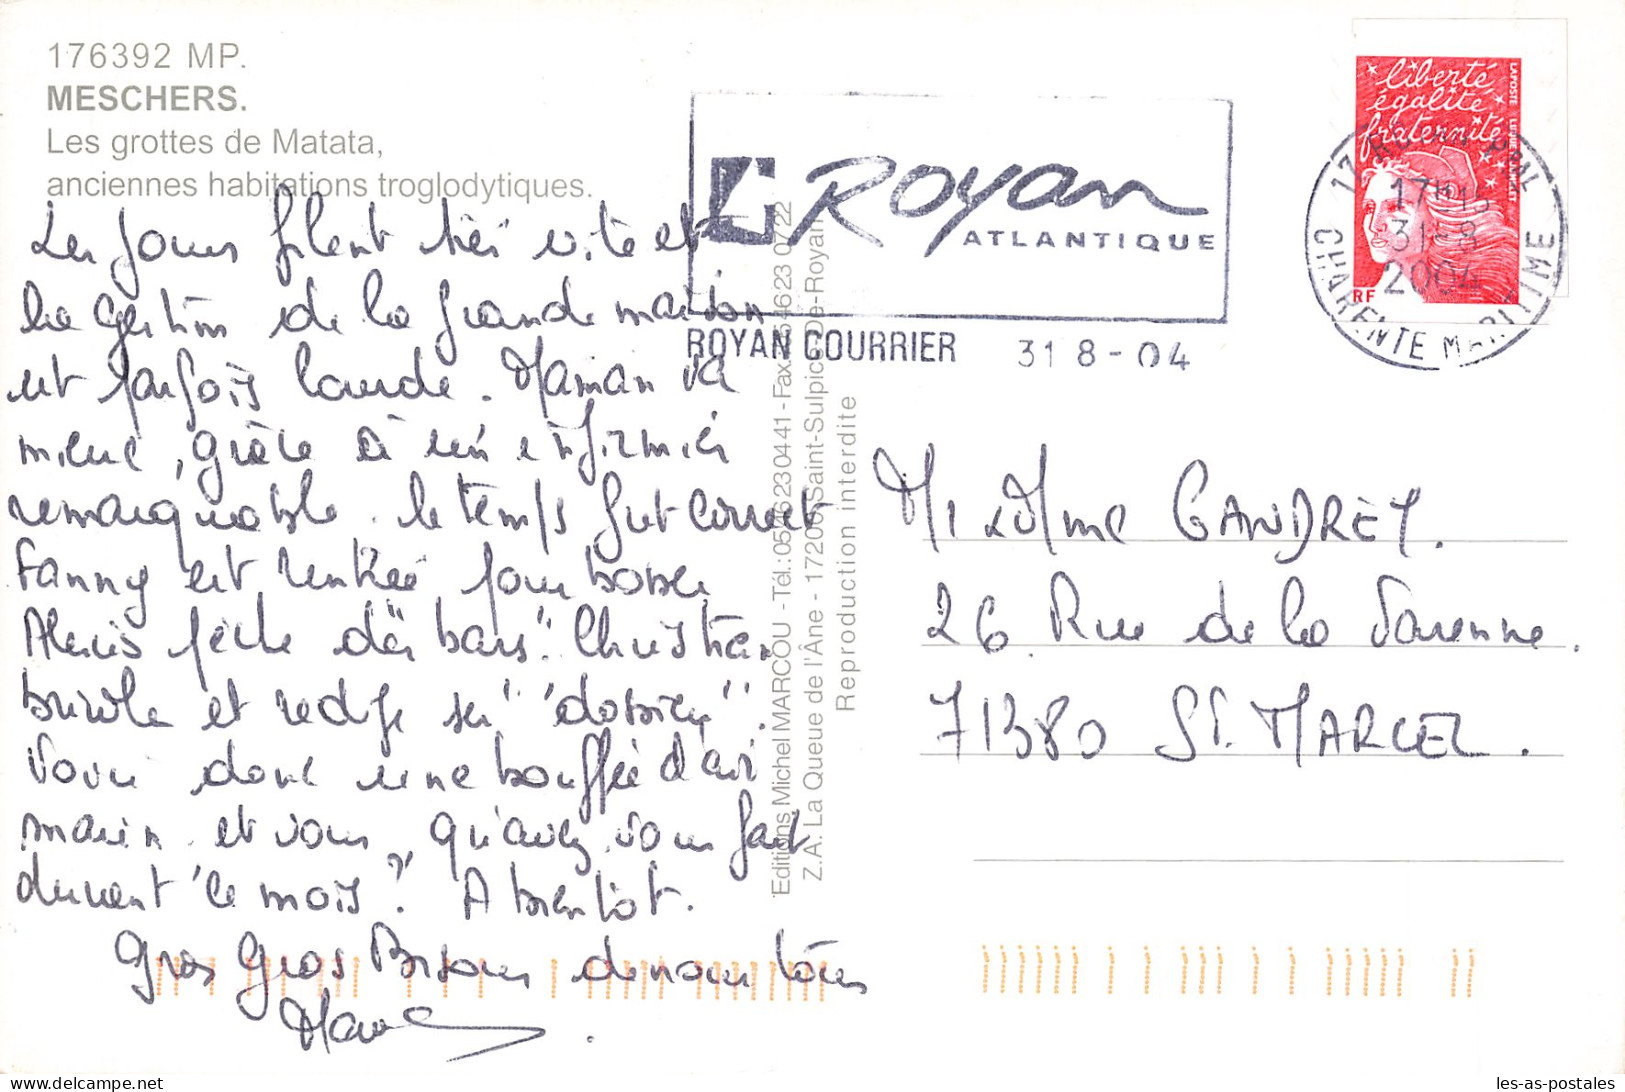 176392 MP.
MESCHERS.
Les grottes de Matata,
anciennes habitations troglodytiques.
Les jours filent très vite et
la gestion de la grande maison
est parfois lourde. Maman va
mieux, grâce à un infirmier
remarquable. le temps fut correct
Fanny est rentrée pour bosser
Alexis pêche des "bars". Christian
bricole et rédige ses "dossiers".
Voici donc une bouffée d'air
marin. et vous, qu'avez vous fait
durant ce mois? A bientôt.
Gros Gros Bisous de nous tous
Royan
ATLANTIQUE
ROYAN COURRIER 31 8-04
liberté
égalité
fraternité
LAPOSTE
RF
17 ROYAN PPAL
17H15
31-8
2004
CHARENTE MARITIME
Editions Michel MARCOU - Tél.:0546230441 - Fax:0546230722
Z.A. La Queue de l'Âne - 17200 Saint-Sulpice-De-Royan
Reproduction interdite
M & Mme GANDREY.
26 Rue de la Varenne.
71380 St. MARCEL.
les-as-postales